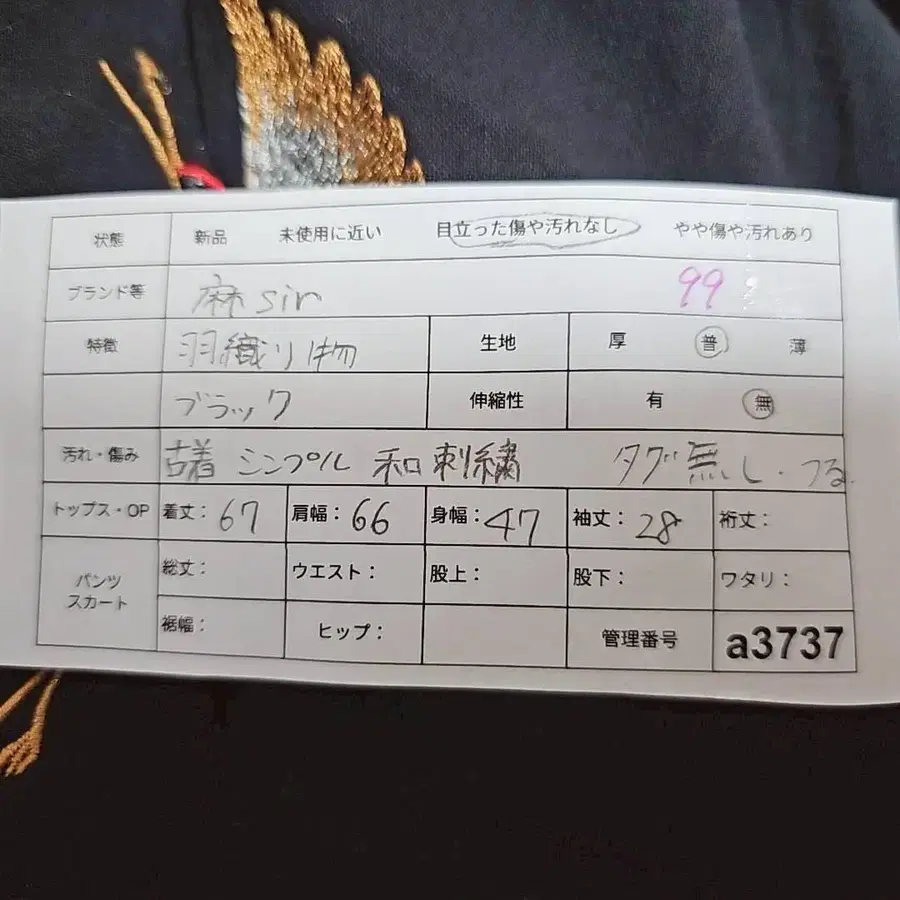 状態 新品 未使用に近い 目立った傷や汚れなし やや傷や汚れあり
ブランド等 麻 sin 99
特徴 羽織り物 生地 厚 普 薄
ブラック 伸縮性 有 無
汚れ・傷み 古着 シンプル 和刺繍 タグ無し・つる
トップス・OP 着丈:67 肩幅:66 身幅:47 袖丈:28 裄丈:
パンツ スカート 総丈: ウエスト: 股上: 股下: ワタリ:
裾幅: ヒップ: 管理番号 a3737